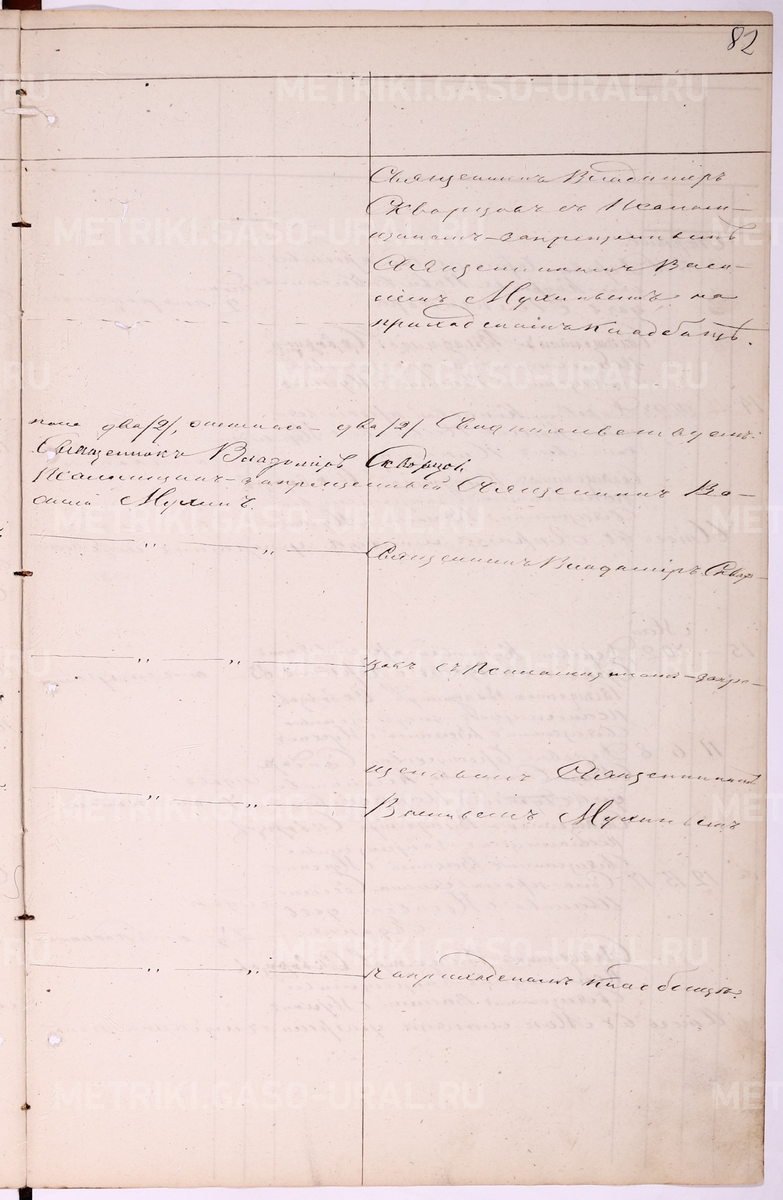 82
Священникъ Владиміръ
Скворцовъ съ Псалом-
щикомъ-запрещеннымъ
Священникомъ Васи-
ліемъ Мухинымъ на
приходскомъ кладбищѣ.
пола два /2/, женскаго два /2/. Свидѣтельствуемъ:
Священникъ Владиміръ Скворцовъ
Псаломщикъ-запрещенный Священникъ Ва-
силій Мухинъ.
" " Священникъ Владиміръ Сквор-
" " цовъ съ Псаломщикомъ-запре-
щеннымъ Священникомъ
" " Васильемъ Мухинымъ
" " на приходскомъ кладбищѣ.
METRIKI.GASO-URAL.RU